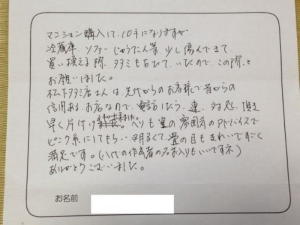 マンション購入して10年になりますが
冷蔵庫 ソファー じゅうたん等 少し傷んできて
買い換える際、タタミも古びていたので、この際と
お願いしました。
松下タタミ店さんは先代からのお客様で昔からの
信用ある店なので、電話したら、速対処、頂き
早く片付け
ヘリも室の雰囲気のアドバイスで
ピンク系にしてもらい 明るくて、畳の目もきれいですごく
満足です。(八代の作者の名前入りもいいですネ)
ありがとうございました。
お名前